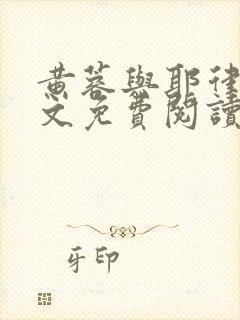 黄蓉與耶律
文免費閱讀
牙印